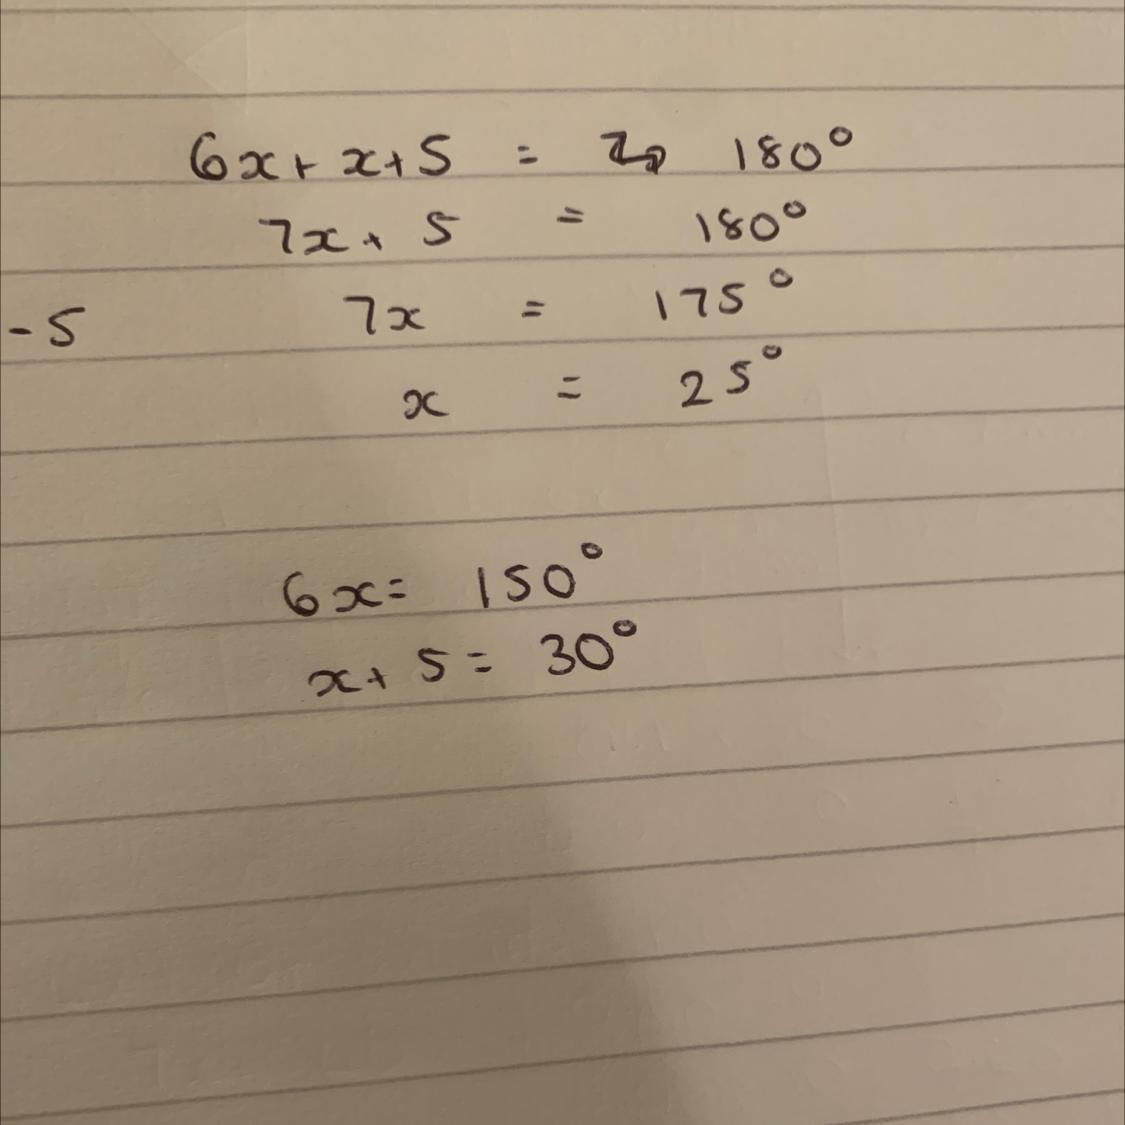 6x + x + 5 = 180°
7x + 5 = 180°
-5 7x = 175°
x = 25°
6x = 150°
x + 5 = 30°